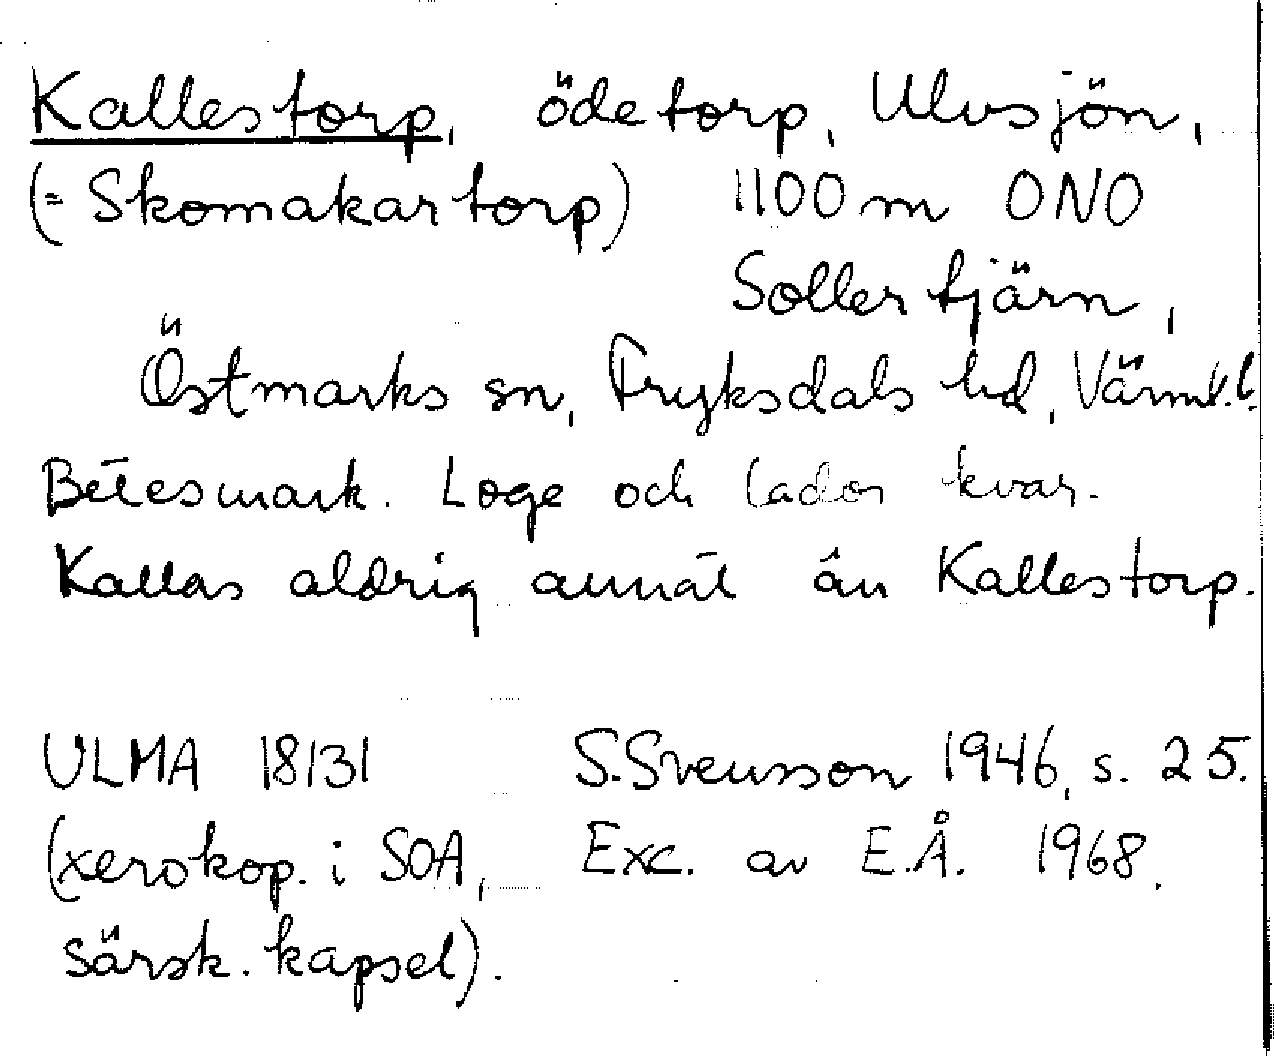 Kallestorp, ödetorp, Ulvsjön,
(= Skomakartorp) 1100 m ONO
Sollertjärn,
Östmarks sn, Fryksdals hd, Värml.l.
Betesmark. Loge och lador kvar.
Kallas aldrig annat än Kallestorp.
ULMA 18131 S. Svensson 1946, s. 25.
(xerokop. i SOA, Exc. av E.Å. 1968.
särsk. kapsel).